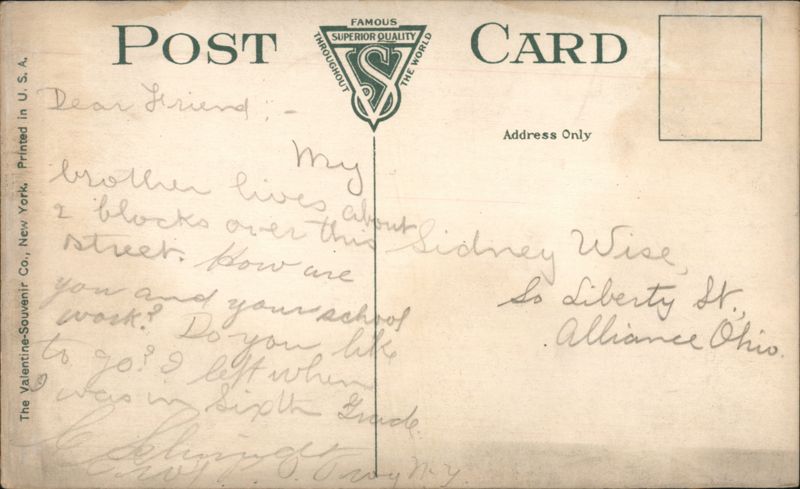 POST CARD
FAMOUS
SUPERIOR QUALITY
THROUGHOUT
THE WORLD
VS
Address Only
The Valentine-Souvenir Co., New York. Printed in U. S. A.
Dear Friend; -
My
brother lives about
2 blocks over this
street. How are
you and your school
work? Do you like
to go? I left when
I was in Sixth Grade.
C Schmidt
Troy N.Y.
Sidney Wise,
So Liberty St.,
Alliance Ohio.